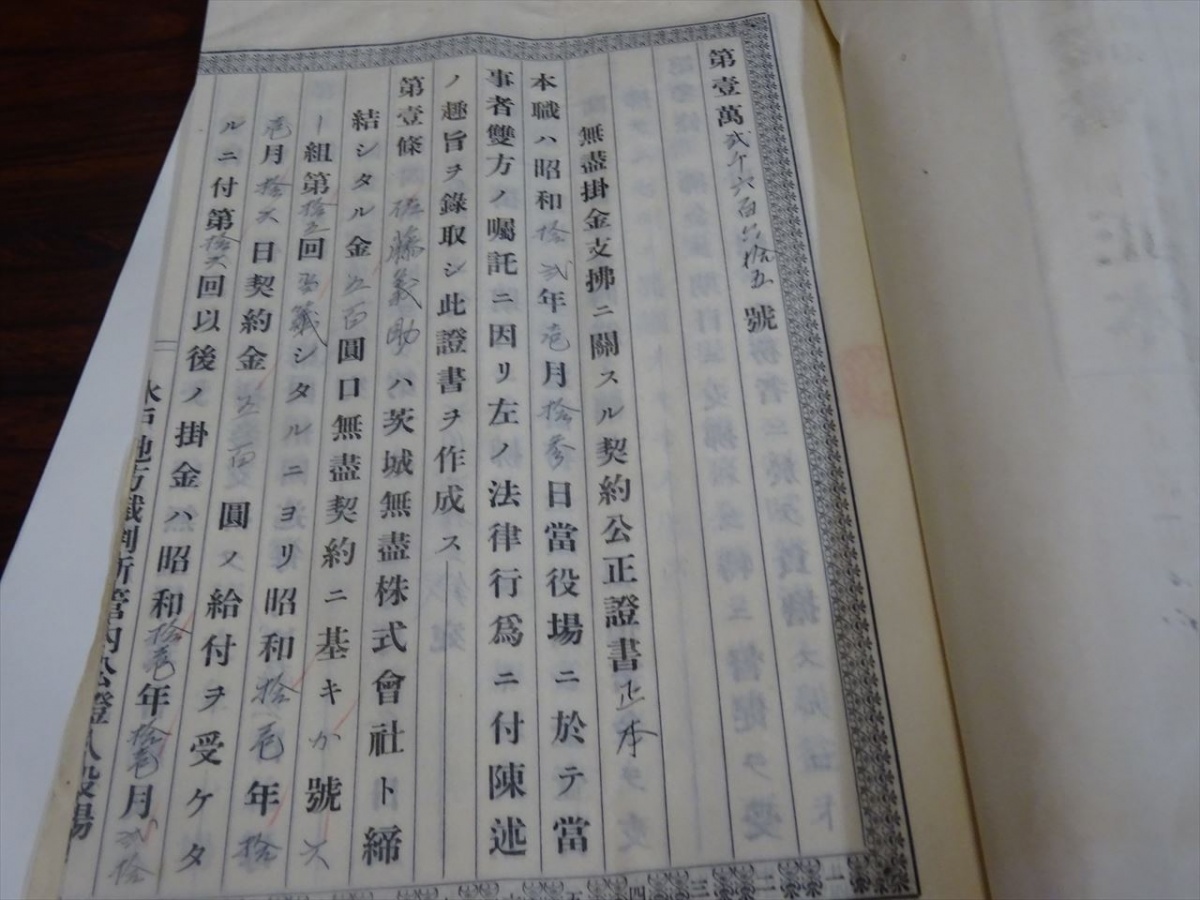 第壹萬弐千六百六拾五號
無盡掛金支拂ニ關スル契約公正證書正本
本職ハ昭和拾弐年壱月拾参日當役場ニ於テ當
事者雙方ノ囑託ニ因リ左ノ法律行爲ニ付陳述
ノ趣旨ヲ錄取シ此證書ヲ作成ス
第壹條 佐藤義助ハ茨城無盡株式會社ト締
結シタル金五百圓口無盡契約ニ基キか號六
ー組第拾五回當籤シタルニヨリ昭和拾壱年拾
壱月拾六日契約金五百圓ノ給付ヲ受ケタ
ルニ付第拾六回以後ノ掛金ハ昭和拾壱年拾壱月弐拾
水戸地方裁判所管內公證人役場
一 二 三 四 五